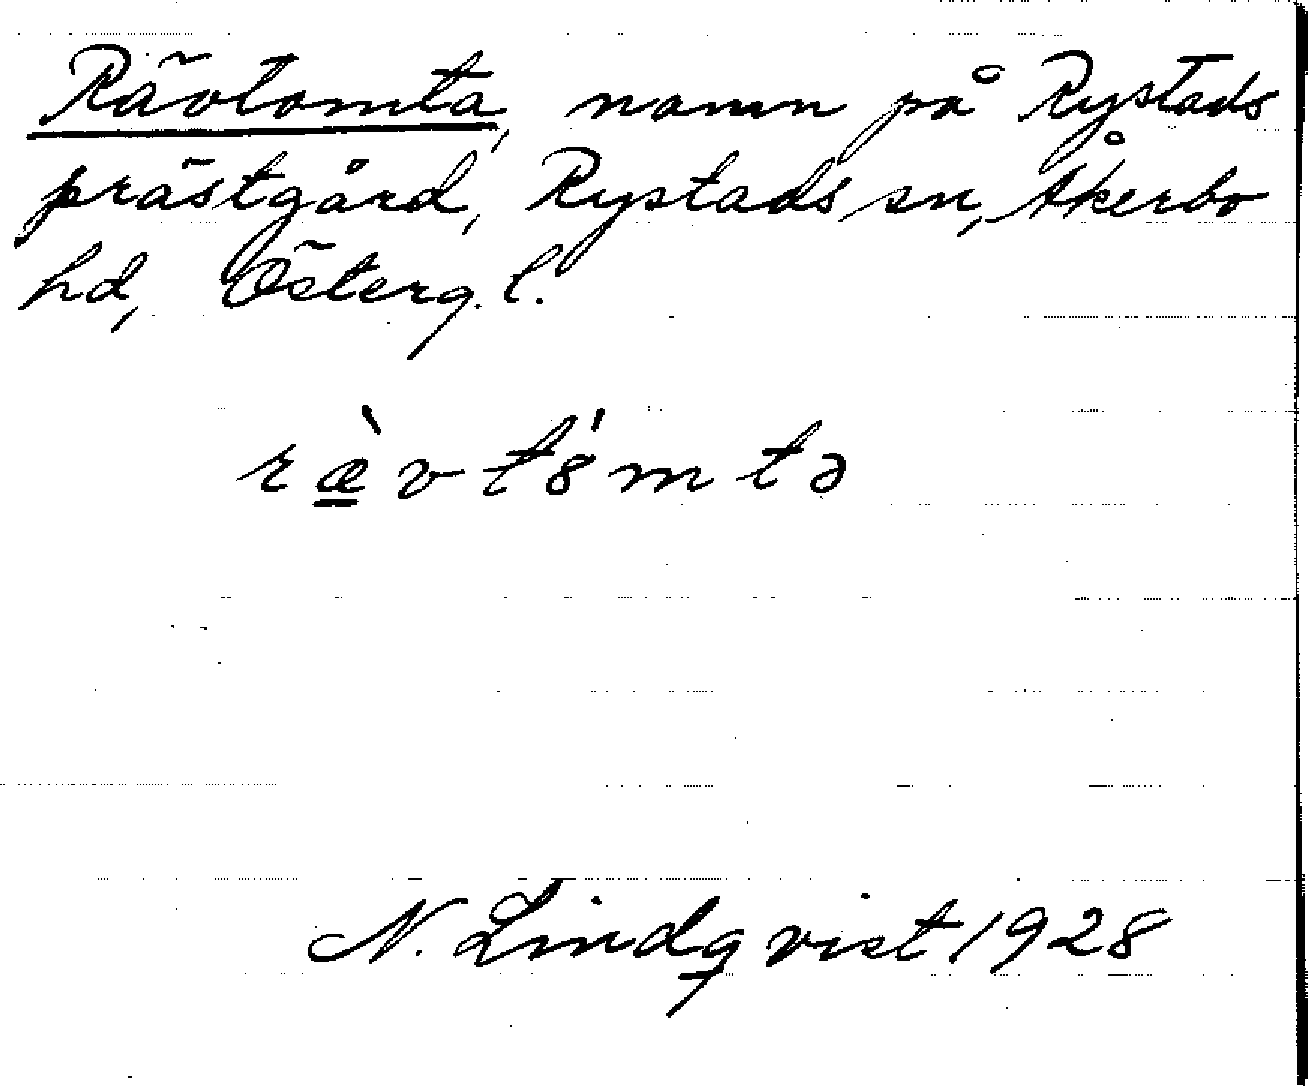 Rävtomta, namn på Rystads
prästgård, Rystads sn, Åkerbo
hd, Österg. l.
ræ̲̀vtȣ́mtə
N. Lindqvist 1928